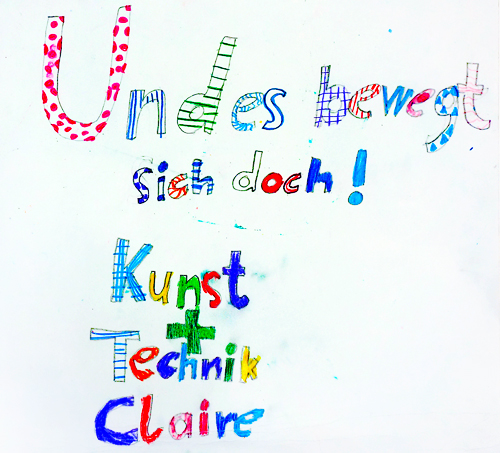 Und es bewegt
sich doch!
Kunst
+
Technik
Claire